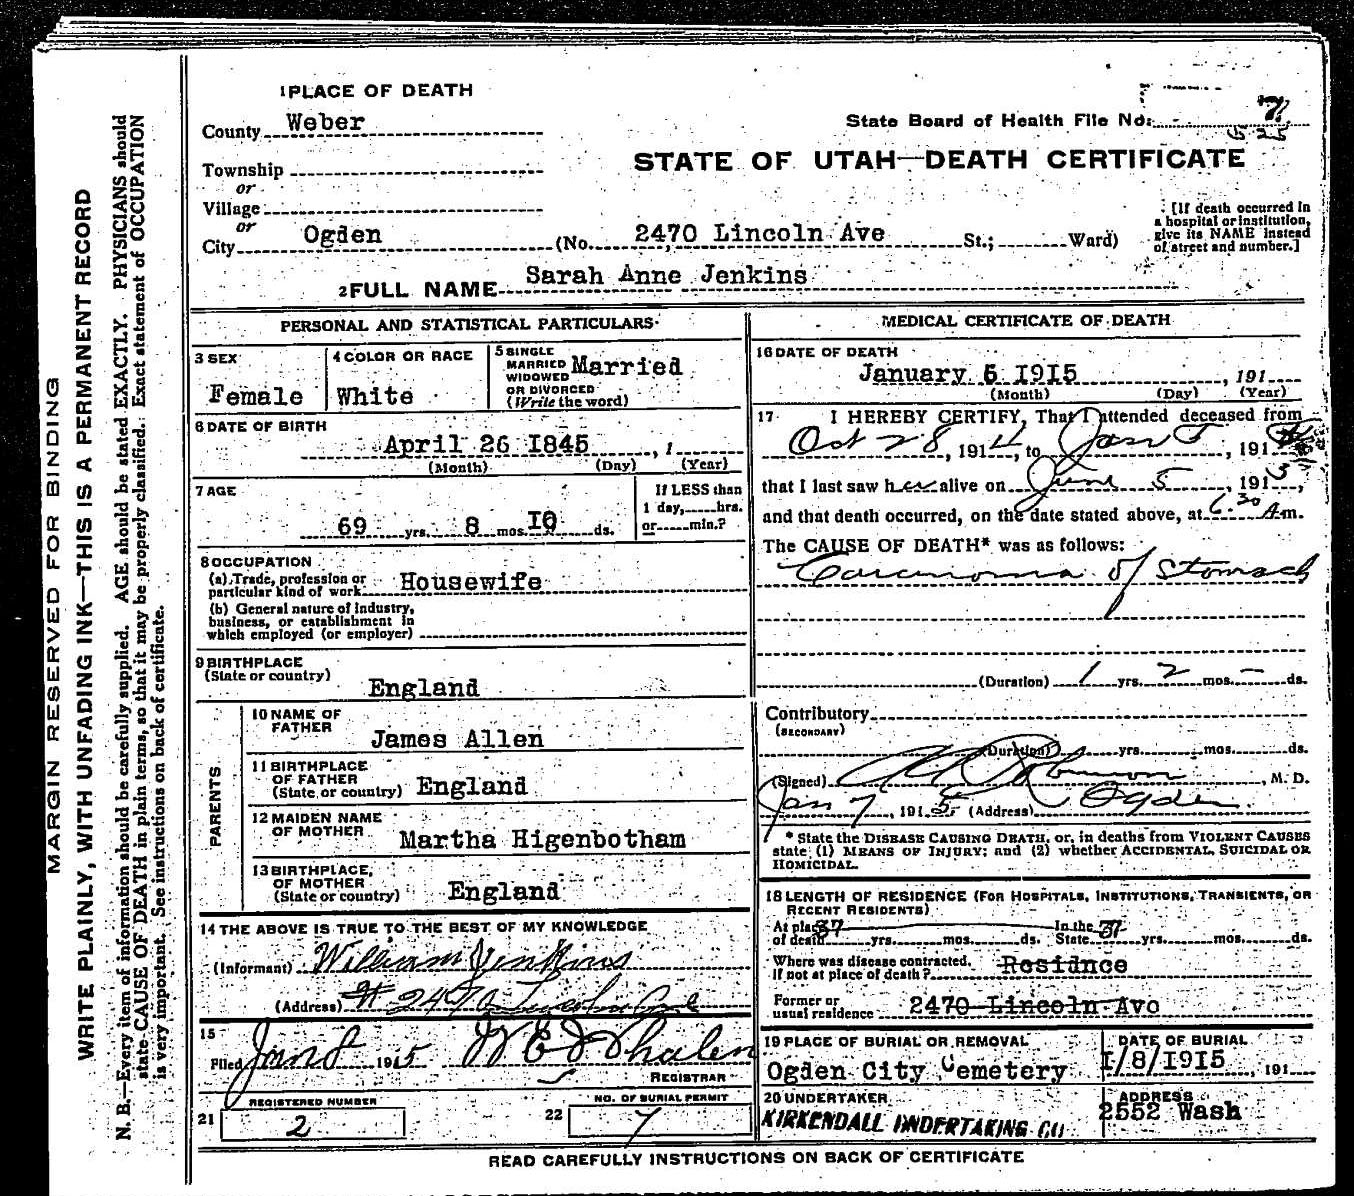 1 PLACE OF DEATH
County Weber
State Board of Health File No.
STATE OF UTAH—DEATH CERTIFICATE
Township
or
Village
or
City Ogden (No. 2470 Lincoln Ave St.; Ward)
[If death occurred in
a hospital or institution,
give its NAME instead
of street and number.]
2 FULL NAME Sarah Anne Jenkins
PERSONAL AND STATISTICAL PARTICULARS
3 SEX
Female
4 COLOR OR RACE
White
5 SINGLE
MARRIED
WIDOWED
OR DIVORCED
(Write the word)
Married
6 DATE OF BIRTH
April 26 1845, 1
(Month) (Day) (Year)
7 AGE
69 yrs. 8 mos. 10 ds.
If LESS than
1 day, hrs.
or min.?
8 OCCUPATION
(a) Trade, profession or
particular kind of work Housewife
(b) General nature of industry,
business, or establishment in
which employed (or employer)
9 BIRTHPLACE
(State or country)
England
PARENTS
10 NAME OF
FATHER
James Allen
11 BIRTHPLACE
OF FATHER
(State or country) England
12 MAIDEN NAME
OF MOTHER
Martha Higenbotham
13 BIRTHPLACE,
OF MOTHER
(State or country) England
14 THE ABOVE IS TRUE TO THE BEST OF MY KNOWLEDGE
(Informant) William Jenkins
(Address) # 2470 Lincoln Ave
15
Filed Jan 8 1915 Whalen
REGISTRAR
21 REGISTERED NUMBER
2
22 NO. OF BURIAL PERMIT
7
MEDICAL CERTIFICATE OF DEATH
16 DATE OF DEATH
January 5 1915, 191
(Month) (Day) (Year)
17 I HEREBY CERTIFY, That I attended deceased from
Oct 28, 1914, to Jan 5 191
that I last saw her alive on 5, 191
and that death occurred, on the date stated above, at 6.30 A.m.
The CAUSE OF DEATH* was as follows:
Carcinoma of Stomach
(Duration) 1 yrs. 2 mos. – ds.
Contributory
(SECONDARY)
(Duration) yrs. mos. ds.
(Signed) Robinson, M. D.
Jan 7, 1915 (Address) Ogden
* State the DISEASE CAUSING DEATH, or, in deaths from VIOLENT CAUSES
state (1) MEANS OF INJURY; and (2) whether ACCIDENTAL, SUICIDAL OR
HOMICIDAL.
18 LENGTH OF RESIDENCE (FOR HOSPITALS, INSTITUTIONS, TRANSIENTS, OR
RECENT RESIDENTS)
At place
of death 37 yrs. mos. ds. In the
State 37 yrs. mos. ds.
Where was disease contracted,
If not at place of death? Residnce
Former or
usual residence 2470 Lincoln Ave
19 PLACE OF BURIAL OR REMOVAL
Ogden City Cemetery
DATE OF BURIAL
1/8/1915, 191
20 UNDERTAKER
KIRKENDALL UNDERTAKING CO
ADDRESS
2552 Wash
READ CAREFULLY INSTRUCTIONS ON BACK OF CERTIFICATE
MARGIN RESERVED FOR BINDING
WRITE PLAINLY, WITH UNFADING INK—THIS IS A PERMANENT RECORD
N. B.—Every item of information should be carefully supplied. AGE should be stated EXACTLY. PHYSICIANS should
state CAUSE OF DEATH in plain terms, so that it may be properly classified. Exact statement of OCCUPATION
is very important. See instructions on back of certificate.